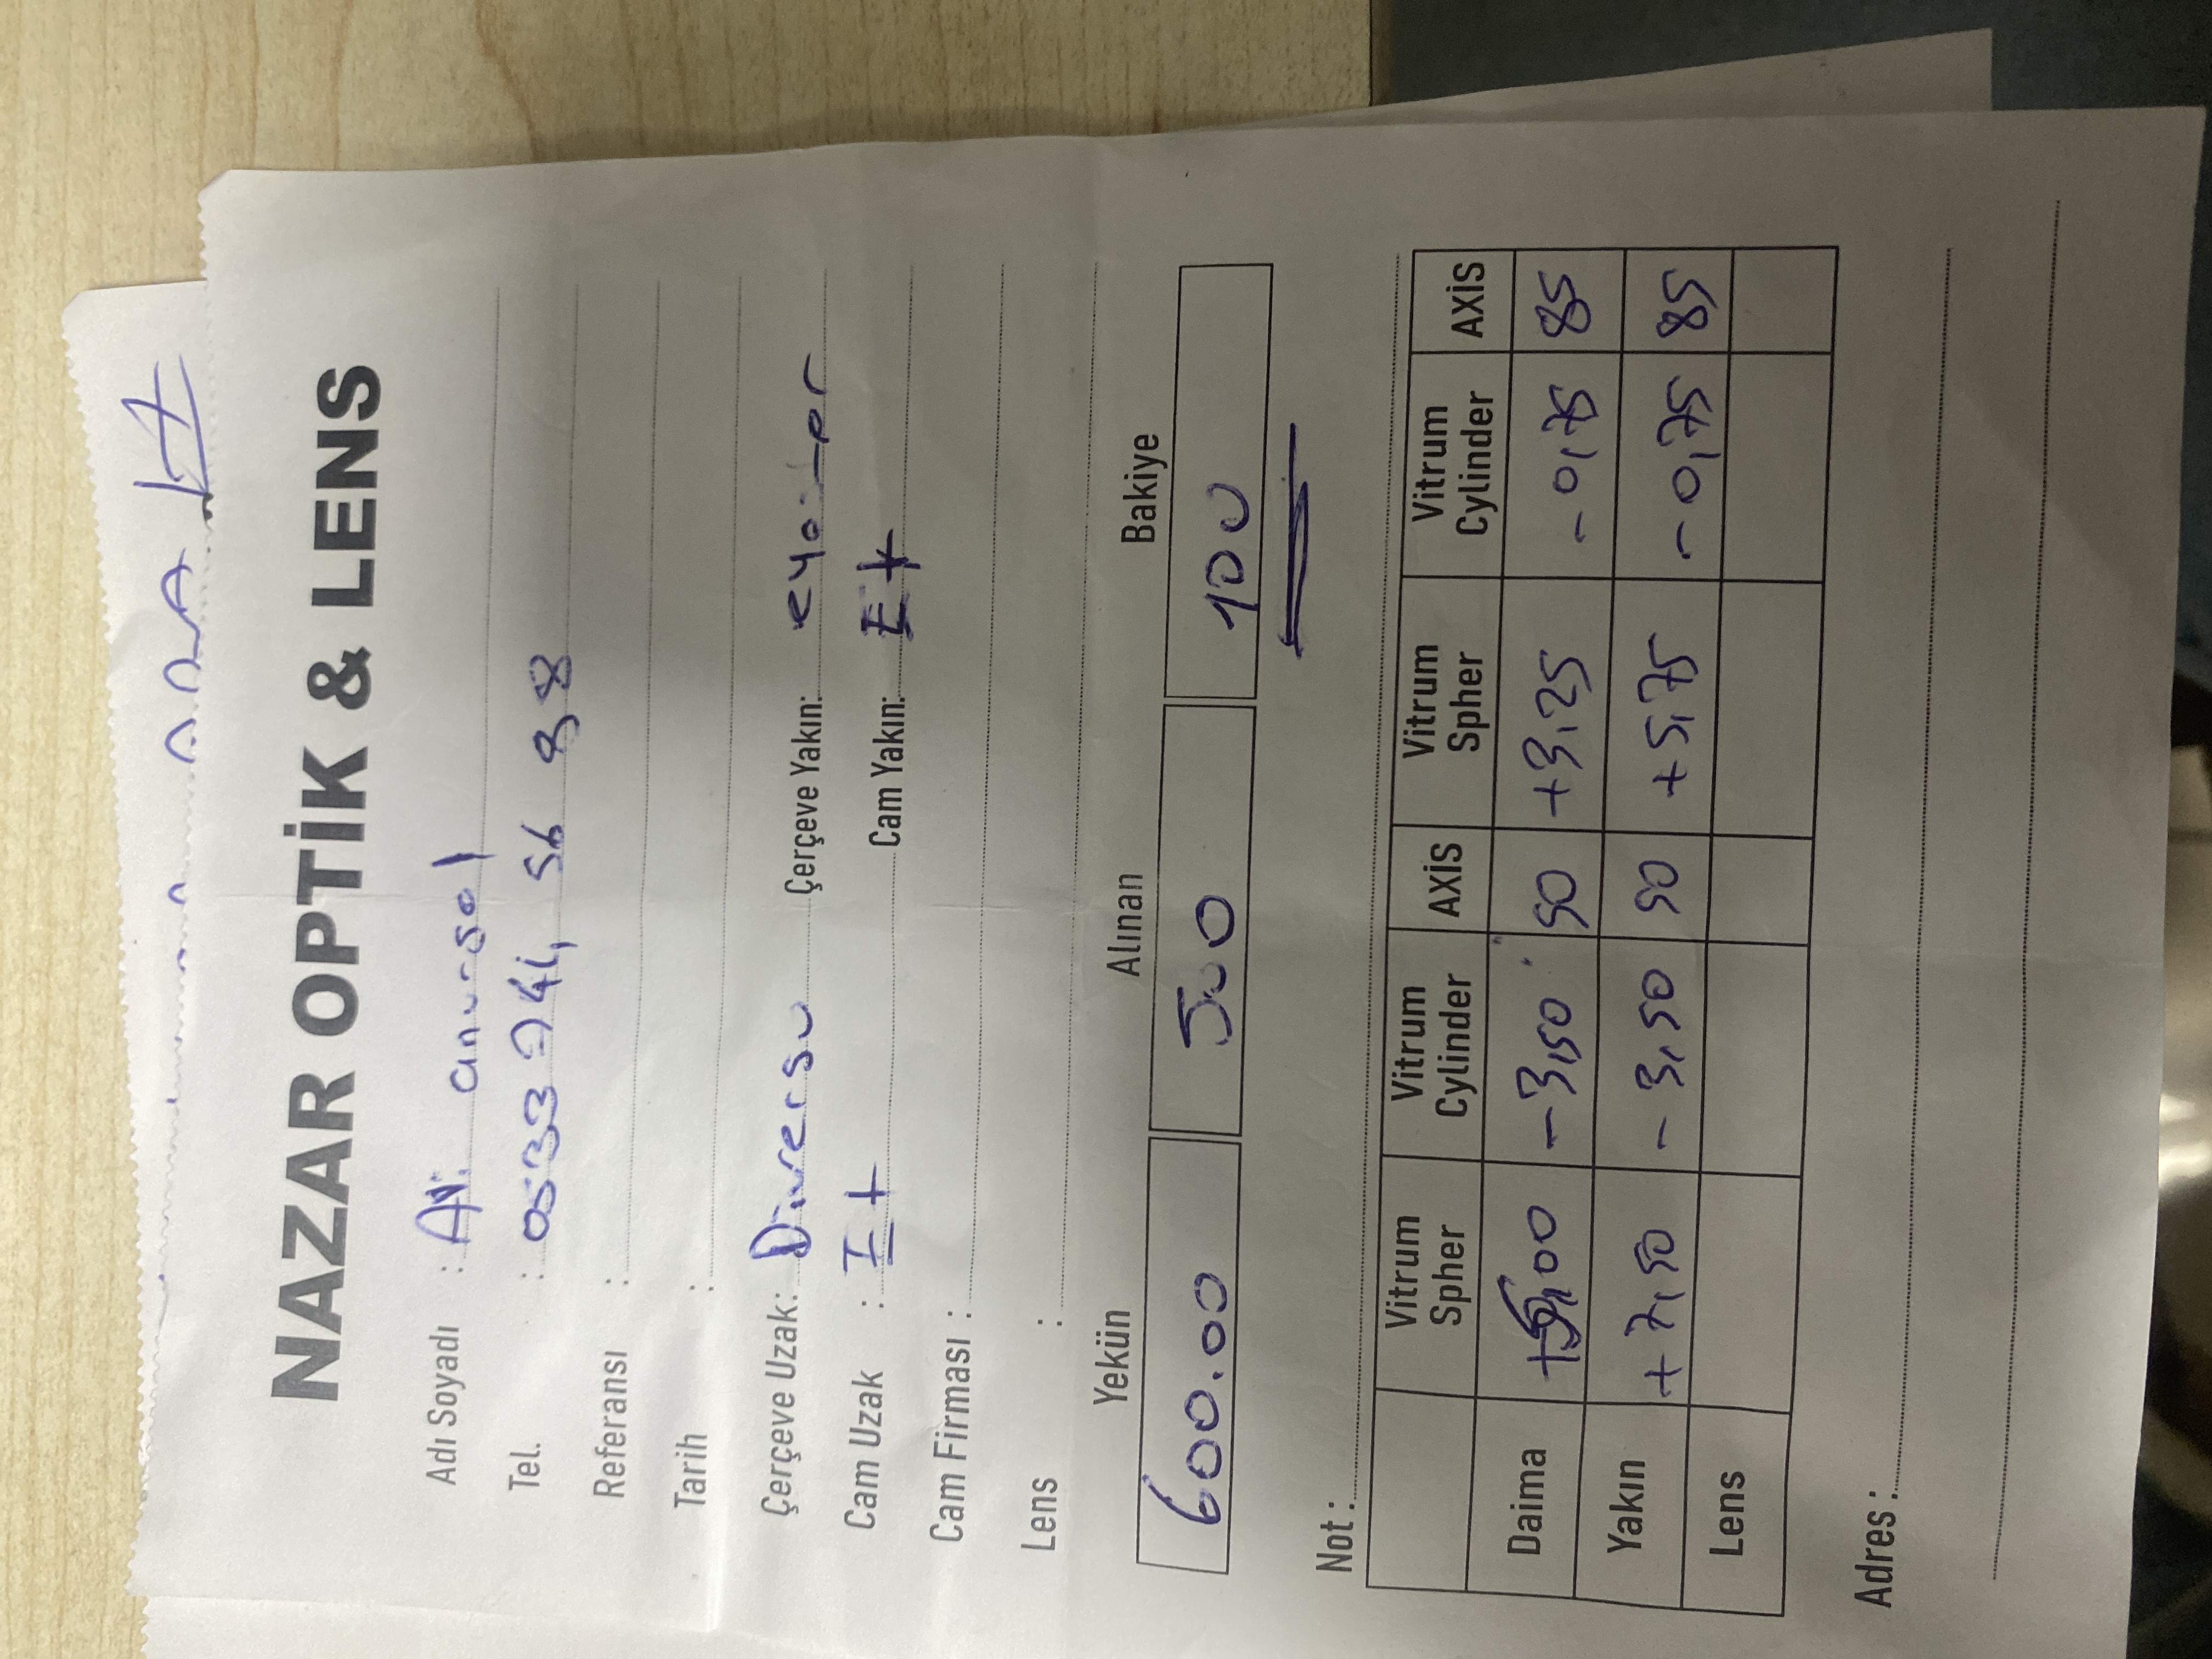 NAZAR OPTİK & LENS
Adı Soyadı : Ali
Tel. : 0533 744 56 98
Referansı :
Tarih :
Çerçeve Uzak: Diverso Çerçeve Yakın:
Cam Uzak : I+ Cam Yakın:
Cam Firması :
Lens :
Yekün Alınan Bakiye
600.00 500 100
Not :
Vitrum Spher Vitrum Cylinder AXİS Vitrum Spher Vitrum Cylinder AXİS
Daima -3,50 50 +3,25 -0,75 85
Yakın +7,50 -3,50 50 +5,75 -0,75 85
Lens
Adres :